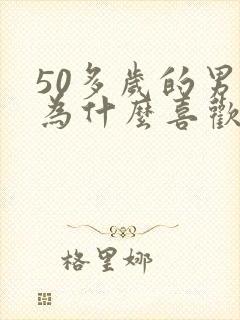 50多歲的男
為什麼喜歡
格里娜